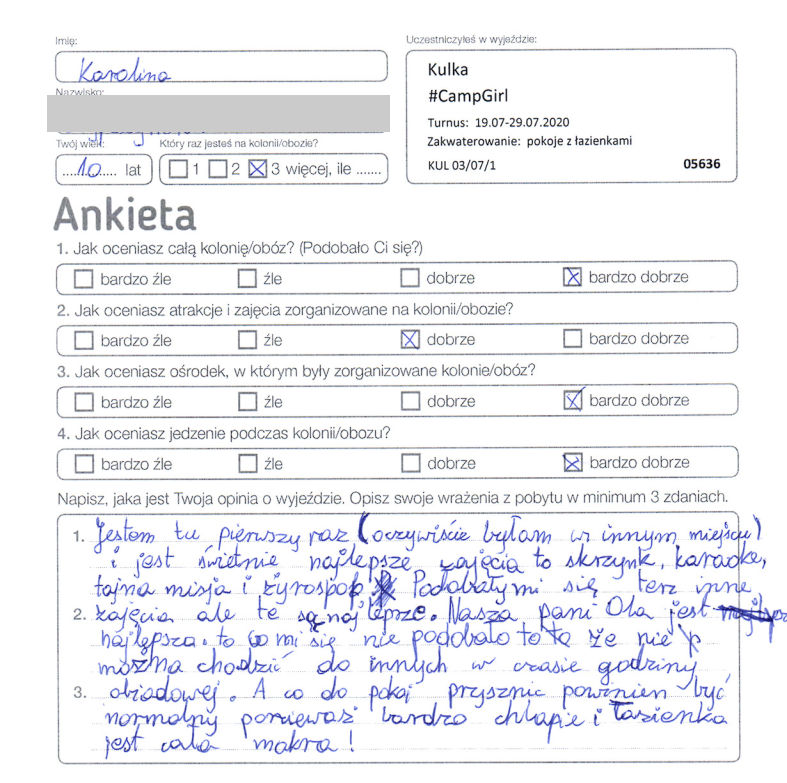 Imię:
Karolina
Nazwisko:
Twój wiek:
....10.... lat
Który raz jesteś na kolonii/obozie?
1 2 3 więcej, ile .......
Uczestniczyłeś w wyjeździe:
Kulka
#CampGirl
Turnus: 19.07-29.07.2020
Zakwaterowanie: pokoje z łazienkami
KUL 03/07/1 05636
Ankieta
1. Jak oceniasz całą kolonię/obóz? (Podobało Ci się?)
bardzo źle źle dobrze bardzo dobrze
2. Jak oceniasz atrakcje i zajęcia zorganizowane na kolonii/obozie?
bardzo źle źle dobrze bardzo dobrze
3. Jak oceniasz ośrodek, w którym były zorganizowane kolonie/obóz?
bardzo źle źle dobrze bardzo dobrze
4. Jak oceniasz jedzenie podczas kolonii/obozu?
bardzo źle źle dobrze bardzo dobrze
Napisz, jaka jest Twoja opinia o wyjeździe. Opisz swoje wrażenia z pobytu w minimum 3 zdaniach.
1. Jestem tu pierwszy raz (oczywiście byłam w innym miejscu)
i jest świetnie najlepsze zajęcia to skrzynk, karaoke,
tajna misja i żyrospop Podobały mi się terz inne
2. zajęcia ale te są naj leprze. Nasza pani Ola jest
najlepsza. to co mi się nie podobało to to że nie
można chodzić do innych w czasie godziny
3. obiadowej. A co do pokoj prysznic powinien być
normalny ponieważ bardzo chlapie i łazienka
jest cała makra!